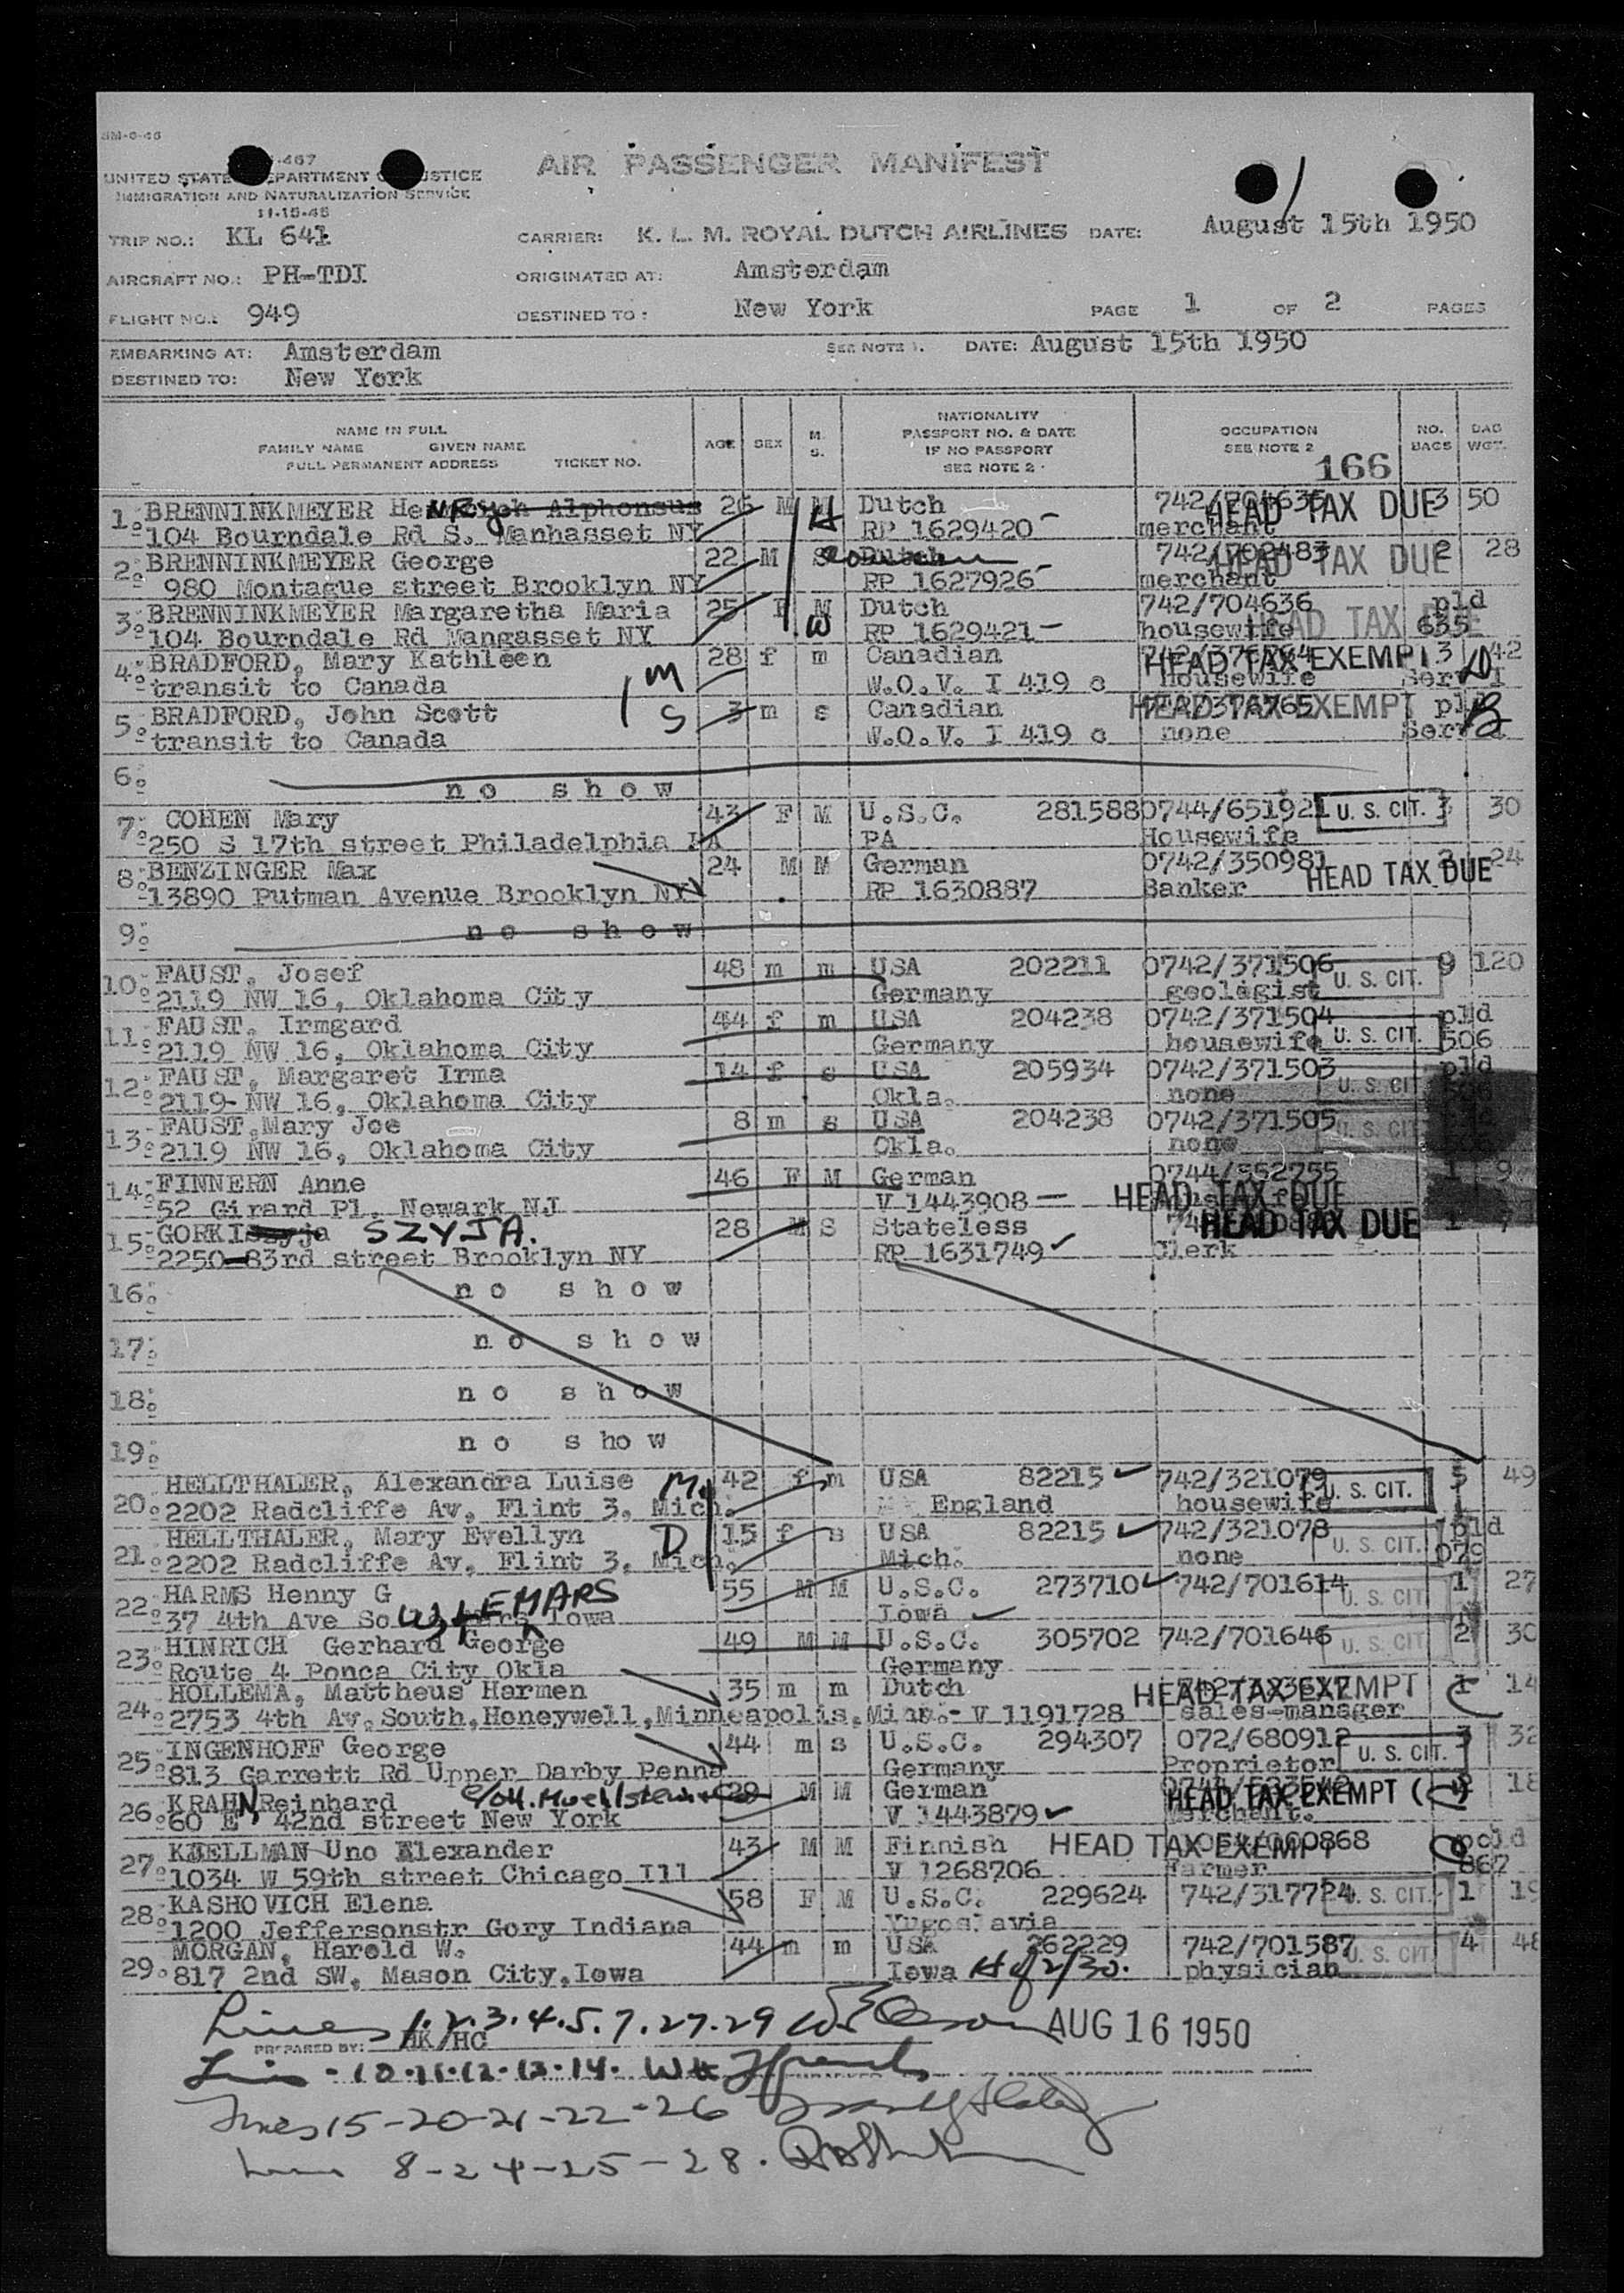 AIR PASSENGER MANIFEST
UNITED STATE EPARTMENT USTICE
IMMIGRATION AND NATURALIZATION SERVICE
11-15-45
TRIP NO.: KL 641 CARRIER: K. L. M. ROYAL DUTCH AIRLINES DATE: August 15th 1950
AIRCRAFT NO.: PH-TDI ORIGINATED AT: Amsterdam
FLIGHT NO.: 949 DESTINED TO: New York PAGE 1 OF 2 PAGES
EMBARKING AT: Amsterdam SEE NOTE 1. DATE: August 15th 1950
DESTINED TO: New York
NAME IN FULL
FAMILY NAME GIVEN NAME
FULL PERMANENT ADDRESS TICKET NO.
AGE SEX M. S.
NATIONALITY
PASSPORT NO. & DATE
IF NO PASSPORT
SEE NOTE 2
OCCUPATION
SEE NOTE 2
166
NO. BAGS
BAG WGT.
1. BRENNINKMEYER Alphonsus 26 M M H Dutch HEAD TAX DUE 3 50
104 Bourndale Rd S. Manhasset NY RP 1629420 merchant
2. BRENNINKMEYER George 22 M S HEAD TAX DUE 2 28
980 Montague street Brooklyn NY RP 1627926 merchant
3. BRENNINKMEYER Margaretha Maria 25 F M W Dutch 742/704636 pld
104 Bourndale Rd Mangasset NY RP 1629421 housewife 635 HEAD TAX DUE
4. BRADFORD, Mary Kathleen M 28 f m Canadian HEAD TAX EXEMPT 3 42
transit to Canada W.O.V. I 419 c housewife
5. BRADFORD, John Scott S 3 m s Canadian HEAD TAX EXEMPT
transit to Canada W.O.V. I 419 c none
6. no show
7. COHEN Mary 43 F M U.S.C. 281588 0744/651921 U. S. CIT. 3 30
250 S 17th street Philadelphia PA PA Housewife
8. BENZINGER Max 24 M M German 0742/350981 HEAD TAX DUE 24
13890 Putman Avenue Brooklyn NY RP 1630887 Banker
9. no show
10. FAUST, Josef 48 m m USA 202211 0742/371506 U. S. CIT. 9 120
2119 NW 16, Oklahoma City Germany geologist
11. FAUST, Irmgard 44 f m USA 204238 0742/371504 U. S. CIT. pld
2119 NW 16, Oklahoma City Germany housewife 506
12. FAUST, Margaret Irma 14 f s USA 205934 0742/371503 U. S. CIT pld
2119 NW 16, Oklahoma City Okla. none
13. FAUST, Mary Joe 8 m s USA 204238 0742/371505 U. S. CIT
2119 NW 16, Oklahoma City Okla. none
14. FINNERN Anne 46 F M German 0744/552755 1 9
52 Girard Pl. Newark NJ V 1443908 HEAD TAX DUE
15. GORKI SZYJA. 28 M S Stateless HEAD TAX DUE
2250-83rd street Brooklyn NY RP 1631749 Clerk
16. no show
17. no show
18. no show
19. no show
20. HELLTHALER, Alexandra Luise M. 42 f m USA 82215 742/321079 U. S. CIT. 5 49
2202 Radcliffe Av, Flint 3, Mich. England housewife
21. HELLTHALER, Mary Evellyn D 15 f s USA 82215 742/321078 U. S. CIT. pld
2202 Radcliffe Av, Flint 3, Mich. Mich. none 079
22. HARMS Henny G 55 M M U.S.C. 273710 742/701614 U. S. CIT 1 27
37 4th Ave So LEMARS Iowa Iowa
23. HINRICH Gerhard George 49 M M U.S.C. 305702 742/701646 U. S. CIT 2 30
Route 4 Ponca City Okla Germany
24. HOLLEMA, Mattheus Harmen 35 m m Dutch HEAD TAX EXEMPT 1 14
2753 4th Av. South, Honeywell, Minneapolis, Minn.- V 1191728 sales-manager
25. INGENHOFF George 44 m s U.S.C. 294307 072/680912 U. S. CIT. 3 32
813 Garrett Rd Upper Darby Penna Germany Proprietor
26. KRAHN Reinhard M M German HEAD TAX EXEMPT 18
60 E 42nd street New York V 1443879 Merchant.
27. KJELLMAN Uno Alexander 43 M M Finnish HEAD TAX EXEMPT
1034 W 59th street Chicago Ill V 1268706 Farmer 867
28. KASHOVICH Elena 58 F M U.S.C. 229624 742/317724 U. S. CIT. 1
1200 Jeffersonstr Gory Indiana Yugoslavia
29. MORGAN, Harold W. 44 m m USA 262229 742/701587 U. S. CIT 4
817 2nd SW, Mason City, Iowa Iowa physician
Lines 1.2.3.4.5.7.27.29 AUG 16 1950
PREPARED BY: HK/HC
10.11.12.13.14.
Lines 15-20-21-22-26
8-24-25-28.